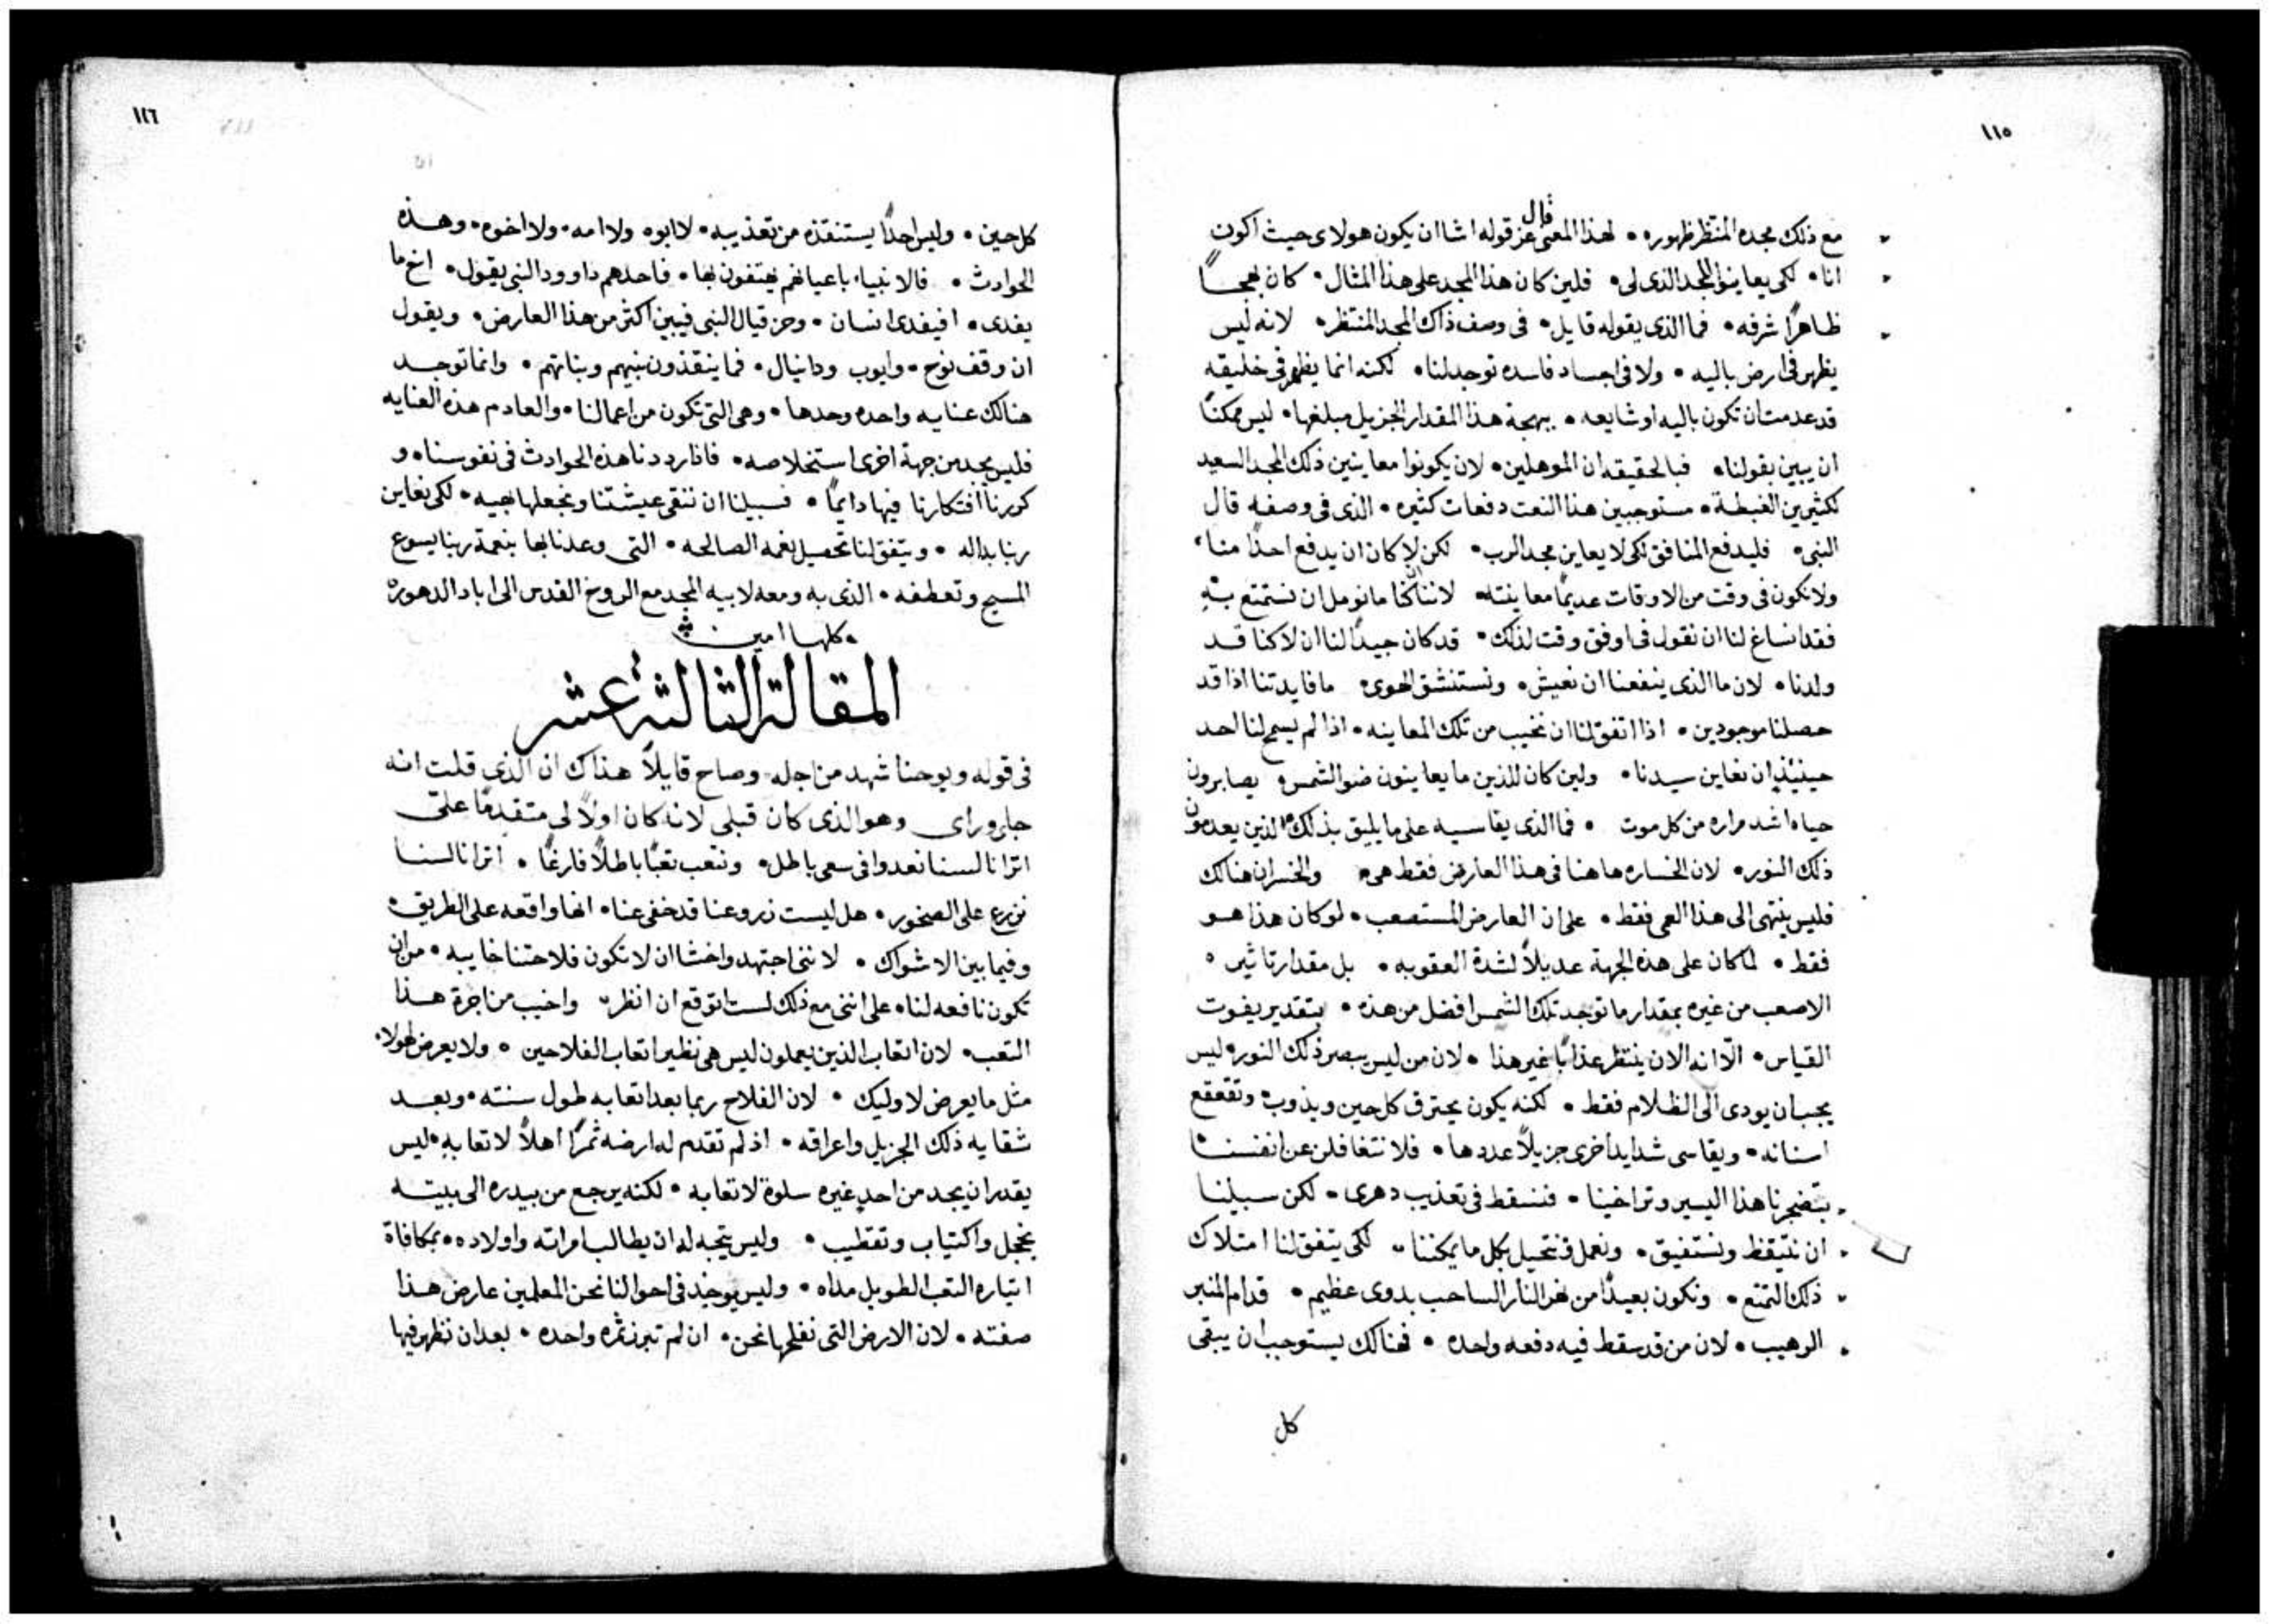 ١١٥
مع ذلك مجده المنتظر ظهوره • لهذا المعنى قال عز قوله اشا ان يكون هولاى حيث اكون
انا • لكى يعاينوا المجد الذى لى • فلين كان هذا المجد على هذا المثال • كان بهجًا
ظاهرًا شرفه • فما الذى يقوله قايل • فى وصف ذاك المجد المنتظر • لانه ليس
يظهر فى ارض باليه • ولا فى اجساد فاسده توجد لنا • لكنه انما يظهر فى خليقه
قد عدمت ان تكون باليه او شايعه • ببهجة هذا المقدار الجزيل مبلغها • ليس ممكنًا
ان يبين بقولنا • فبالحقيقه ان الموهلين • لان يكونوا معاينين ذلك المجد السعيد
لكثيرين الغبطة • مستوجبين هذا النعت دفعات كثيره • الذى فى وصفه قال
النبى • فليدفع المنافق لكى لا يعاين مجد الرب • لكن لا كان ان يدفع احدًا منا •
ولا نكون فى وقت من الاوقات عديمًا معاينته • لاننا كنا ما نومل ان نستمتع به
فقد انساغ لنا ان نقول فى اوفق وقت لذلك • قد كان جيدًا لنا ان لا كنا قد
ولدنا • لان ما الذى ينفعنا ان نعيش • ونستنشق الهوى • ما فايدتنا اذا قد
حصلنا موجودين • اذا اتفق لنا ان نخيب من تلك المعاينه • اذا لم يسمح لنا احد
حينيذٍ ان نعاين سيدنا • ولين كان للذين ما يعاينون ضو الشمس • يصابرون
حياه اشد مراره من كل موت • فما الذى يقاسيه على ما يليق بذلك الذين يعدمون
ذلك النور • لان الخساره هاهنا فى هذا العارض فقط هى • والخسران هنالك
فليس ينتهى الى هذا العمى فقط • على ان العارض المستصعب • لو كان هذا هو
فقط • لما كان على هذه الجهة عديلاً لشدة العقوبه • بل مقدار تاثير •
الاصعب من غيره بمقدار ما توجد تلك الشمس افضل من هذه • بتقدير يفوت
القياس • الّا انه الان ينتظر عذابًا غير هذا • لان من ليس يبصر ذلك النور • ليس
يجب ان يودى الى الظلام فقط • لكنه يكون يحترق كل حين ويذوب • وتقعقع
اسنانه • ويقاسى شدايد اخرى جزيلاً عددها • فلا نتغافلن عن انفسنا •
بتضجرنا هذا اليسير وتراخينا • فنسقط فى تعذيب دهرى • لكن سبيلنا
ان نتيقظ ونستفيق • ونعمل ونتحيل بكل ما يمكننا • لكى يتفق لنا امتلاك
ذلك التمتع • ونكون بعيدًا من نهر النار الساحب بدوى عظيم • قدام المنبر
الرهيب • لان من قد سقط فيه دفعه واحده • فهنالك يستوجب ان يبقى
كل
١١٦
كل حين • وليس احدًا يستنقذه من تعذيبه • لا ابوه • ولا امه • ولا اخوه • وهذه
الحوادث • فالانبياء باعيانهم يهتفون بها • فاحدهم داوود النبى يقول • اخ ما
يفدى • افيفدى انسان • وحزقيال النبى فيبين اكثر من هذا العارض • ويقول
ان وقف نوح • وايوب ودانيال • فما ينقذون بنيهم وبناتهم • وانما توجد
هنالك عنايه واحده وحدها • وهى التى تكون من اعمالنا • والعادم هذه العنايه
فليس يجد من جهة اخرى استخلاصه • فاذا رددنا هذه الحوادث فى نفوسنا • و
كررنا افتكارنا فيها دايمًا • فسبيلنا ان ننقى عيشتنا ونجعلها بهيه • لكى نعاين
ربنا بداله • ويتفق لنا تحصيل نعمه الصالحه • التى وعدنا بها بنعمة ربنا يسوع
المسيح وتعطفه • الذى به ومعه لابيه المجد مع الروح القدس الى اباد الدهور •
• كلها امين
المقالة الثالثة عشر
فى قوله ويوحنا شهد من اجله وصاح قايلاً هذاك ان الذى قلت انه
جاى وراى وهو الذى كان قبلى لانه كان اولاً لى متقدمًا علىّ
اترانا لسنا نعدوا فى سعى باطل • ونتعب تعبًا باطلاً فارغًا • اترانا لسنا
نزرع على الصخور • هل ليست زروعنا قد خفى عنا • انها واقعه على الطريق •
وفيما بين الاشواك • لاننى اجتهد واخشا ان لا تكون فلاحتنا خايبه • من ان
تكون نافعه لنا • على اننى مع ذلك لست اتوقع ان انظر • واخيب من اجرة هذا
التعب • لان اتعاب الذين يعملون ليس هى نظير اتعاب الفلاحين • ولا يعرض لهولا •
مثل ما يعرض لاوليك • لان الفلاح ربما بعد اتعابه طول سنته • وبعد
شقايه ذلك الجزيل واعراقه • اذ لم تقدم له ارضه ثمرًا اهلاً لاتعابه • ليس
يقدر ان يجد من احدٍ غيره سلوة لاتعابه • لكنه يرجع من بيدره الى بيته
بخجل واكتياب وتقطيب • وليس يتجه له ان يطالب امراته واولاده • بمكافاة
اتياره التعب الطويل مداه • وليس يوجد فى احوالنا نحن المعلمين عارض هذا
صفته • لان الارض التى نفلحها نحن • ان لم تبرز ثمره واحده • بعد ان نظهر فيها